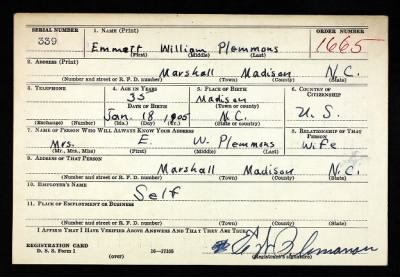 SERIAL NUMBER 1. NAME (Print) ORDER NUMBER
339 Emmett William Plemmons 1665
(First) (Middle) (Last)
2. ADDRESS (Print)
Marshall Madison N.C.
(Number and street or R. F. D. number) (Town) (County) (State)
3. TELEPHONE 4. AGE IN YEARS 5. PLACE OF BIRTH 6. COUNTRY OF CITIZENSHIP
35 Madison
DATE OF BIRTH (Town or county)
Jan. 18 1905 N.C. U.S.
(Exchange) (Number) (Mo.) (Day) (Yr.) (State or country)
7. NAME OF PERSON WHO WILL ALWAYS KNOW YOUR ADDRESS 8. RELATIONSHIP OF THAT PERSON
Mrs. E. W. Plemmons Wife
(Mr., Mrs., Miss) (First) (Middle) (Last)
9. ADDRESS OF THAT PERSON
Marshall Madison N.C.
(Number and street or R. F. D. number) (Town) (County) (State)
10. EMPLOYER'S NAME
Self
11. PLACE OF EMPLOYMENT OR BUSINESS
(Number and street or R. F. D. number) (Town) (County) (State)
I AFFIRM THAT I HAVE VERIFIED ABOVE ANSWERS AND THAT THEY ARE TRUE.
REGISTRATION CARD
D. S. S. Form 1 (over) 16-17105 (Registrant's signature)